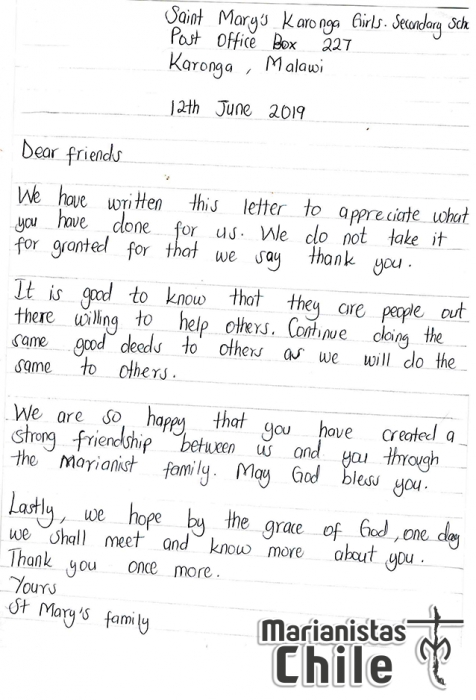 Saint Mary's Karonga Girls. Secondary Sch
Post Office Box 227
Karonga, Malawi
12th June 2019
Dear friends
We have written this letter to appreciate what
you have done for us. We do not take it
for granted for that we say thank you.
It is good to know that they are people out
there willing to help others. Continue doing the
same good deeds to others as we will do the
same to others.
We are so happy that you have created a
strong friendship between us and you through
the Marianist family. May God bless you.
Lastly, we hope by the grace of God, one day
we shall meet and know more about you.
Thank you once more.
Yours
St Mary's family
Marianistas
Chile